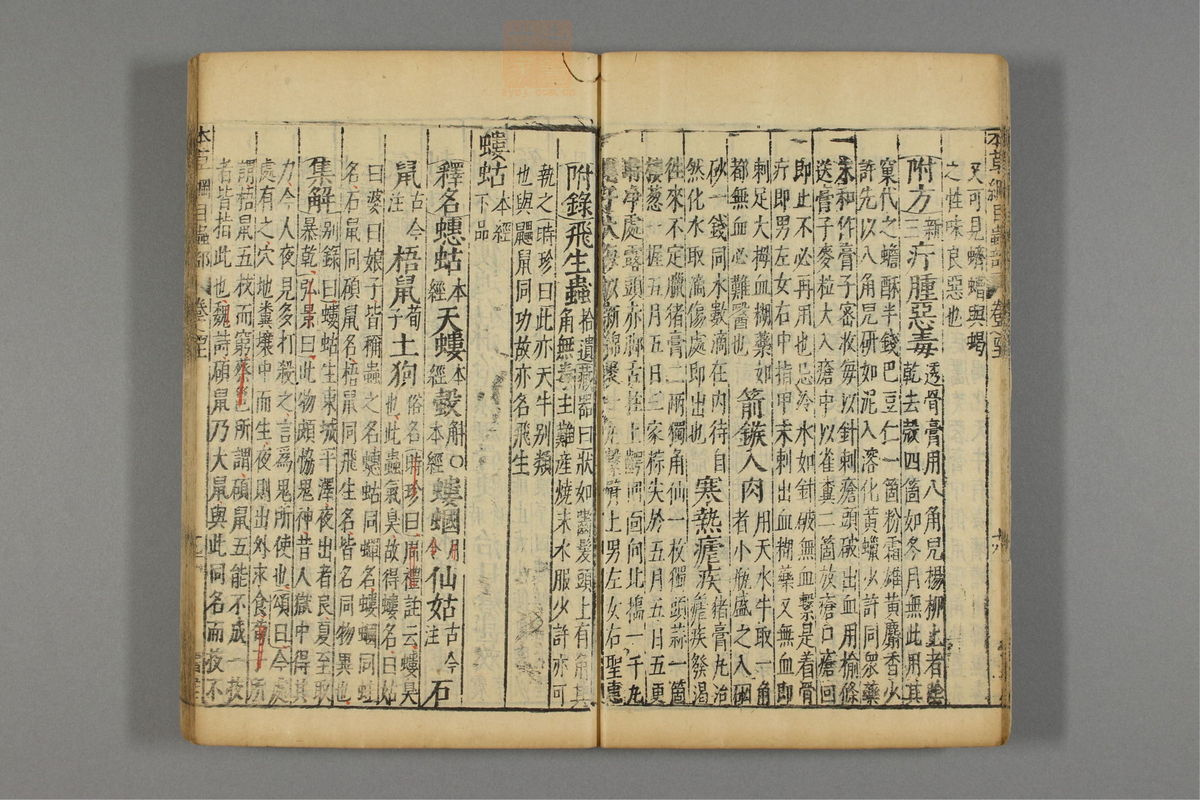 又可見蠐螬與蝎
之性味良惡也
附方新三疔腫惡毒透骨膏用八角兒楊柳上者陰
乾去殼四箇如冬月無此用其
窠代之蟾酥半錢巴豆仁一箇粉霜雄黄麝香少
許先以八角兒研如泥入溶化黄蠟少許同衆藥
末和作膏子密收每以針刺瘡頭破出血用榆條
送膏子麥粒大入瘡中以雀糞二箇放瘡口瘡回
即止不必再用也忌冷水如針破無血繫是着骨
疔即男左女右中指甲末刺出血糊藥又無血即
刺足大拇血糊藥如
都無血必難醫也 箭鏃入肉用天水牛取一角
者小瓶盛之入硇
砂一錢同水數滴在内待自
然化水取滴傷處即出也 寒熱瘧疾猪膏丸治
瘧疾發渴
往來不定臘猪膏二兩獨角仙一枚獨頭蒜一箇
樓葱一握五月五日三家粽尖於五月五日五更
淨處露頭赤脚舌拄上齶回面向北擣一千
新綿裹 繫臂上男左女右聖惠
附錄飛生蟲拾遺藏器曰狀如齧髮頭上有角其
角無毒主難産燒末水服少許亦可
執之時珍曰此亦天牛别類
也與鼺鼠同功故亦名飛生
螻蛄本經下品
釋名蟪蛄本經天螻本經䗇解〇本經螻蟈月令仙姑古今注石
鼠古今注梧鼠荀子土狗俗名時珍曰周禮註云螻臭
也此蟲氣臭故得螻名曰姑
曰婆曰娘子皆稱蟲之名蟪蛄同蟬名螻蟈同蛙
名石鼠同碩鼠名梧鼠同飛生名皆名同物異也
集解别錄曰螻蛄生東城平澤夜出者良夏至取
暴乾弘景曰此物頗協鬼神昔人獄中得其
力今人夜見多打殺之言爲鬼所使也頌曰今處
處有之穴地糞壤中而生夜則出外求食荀 所
謂梧鼠五技而窮蔡邕所謂碩鼠五能不成一技
者皆指此也魏詩碩鼠乃大鼠與此同名而技不
本草綱目蟲部